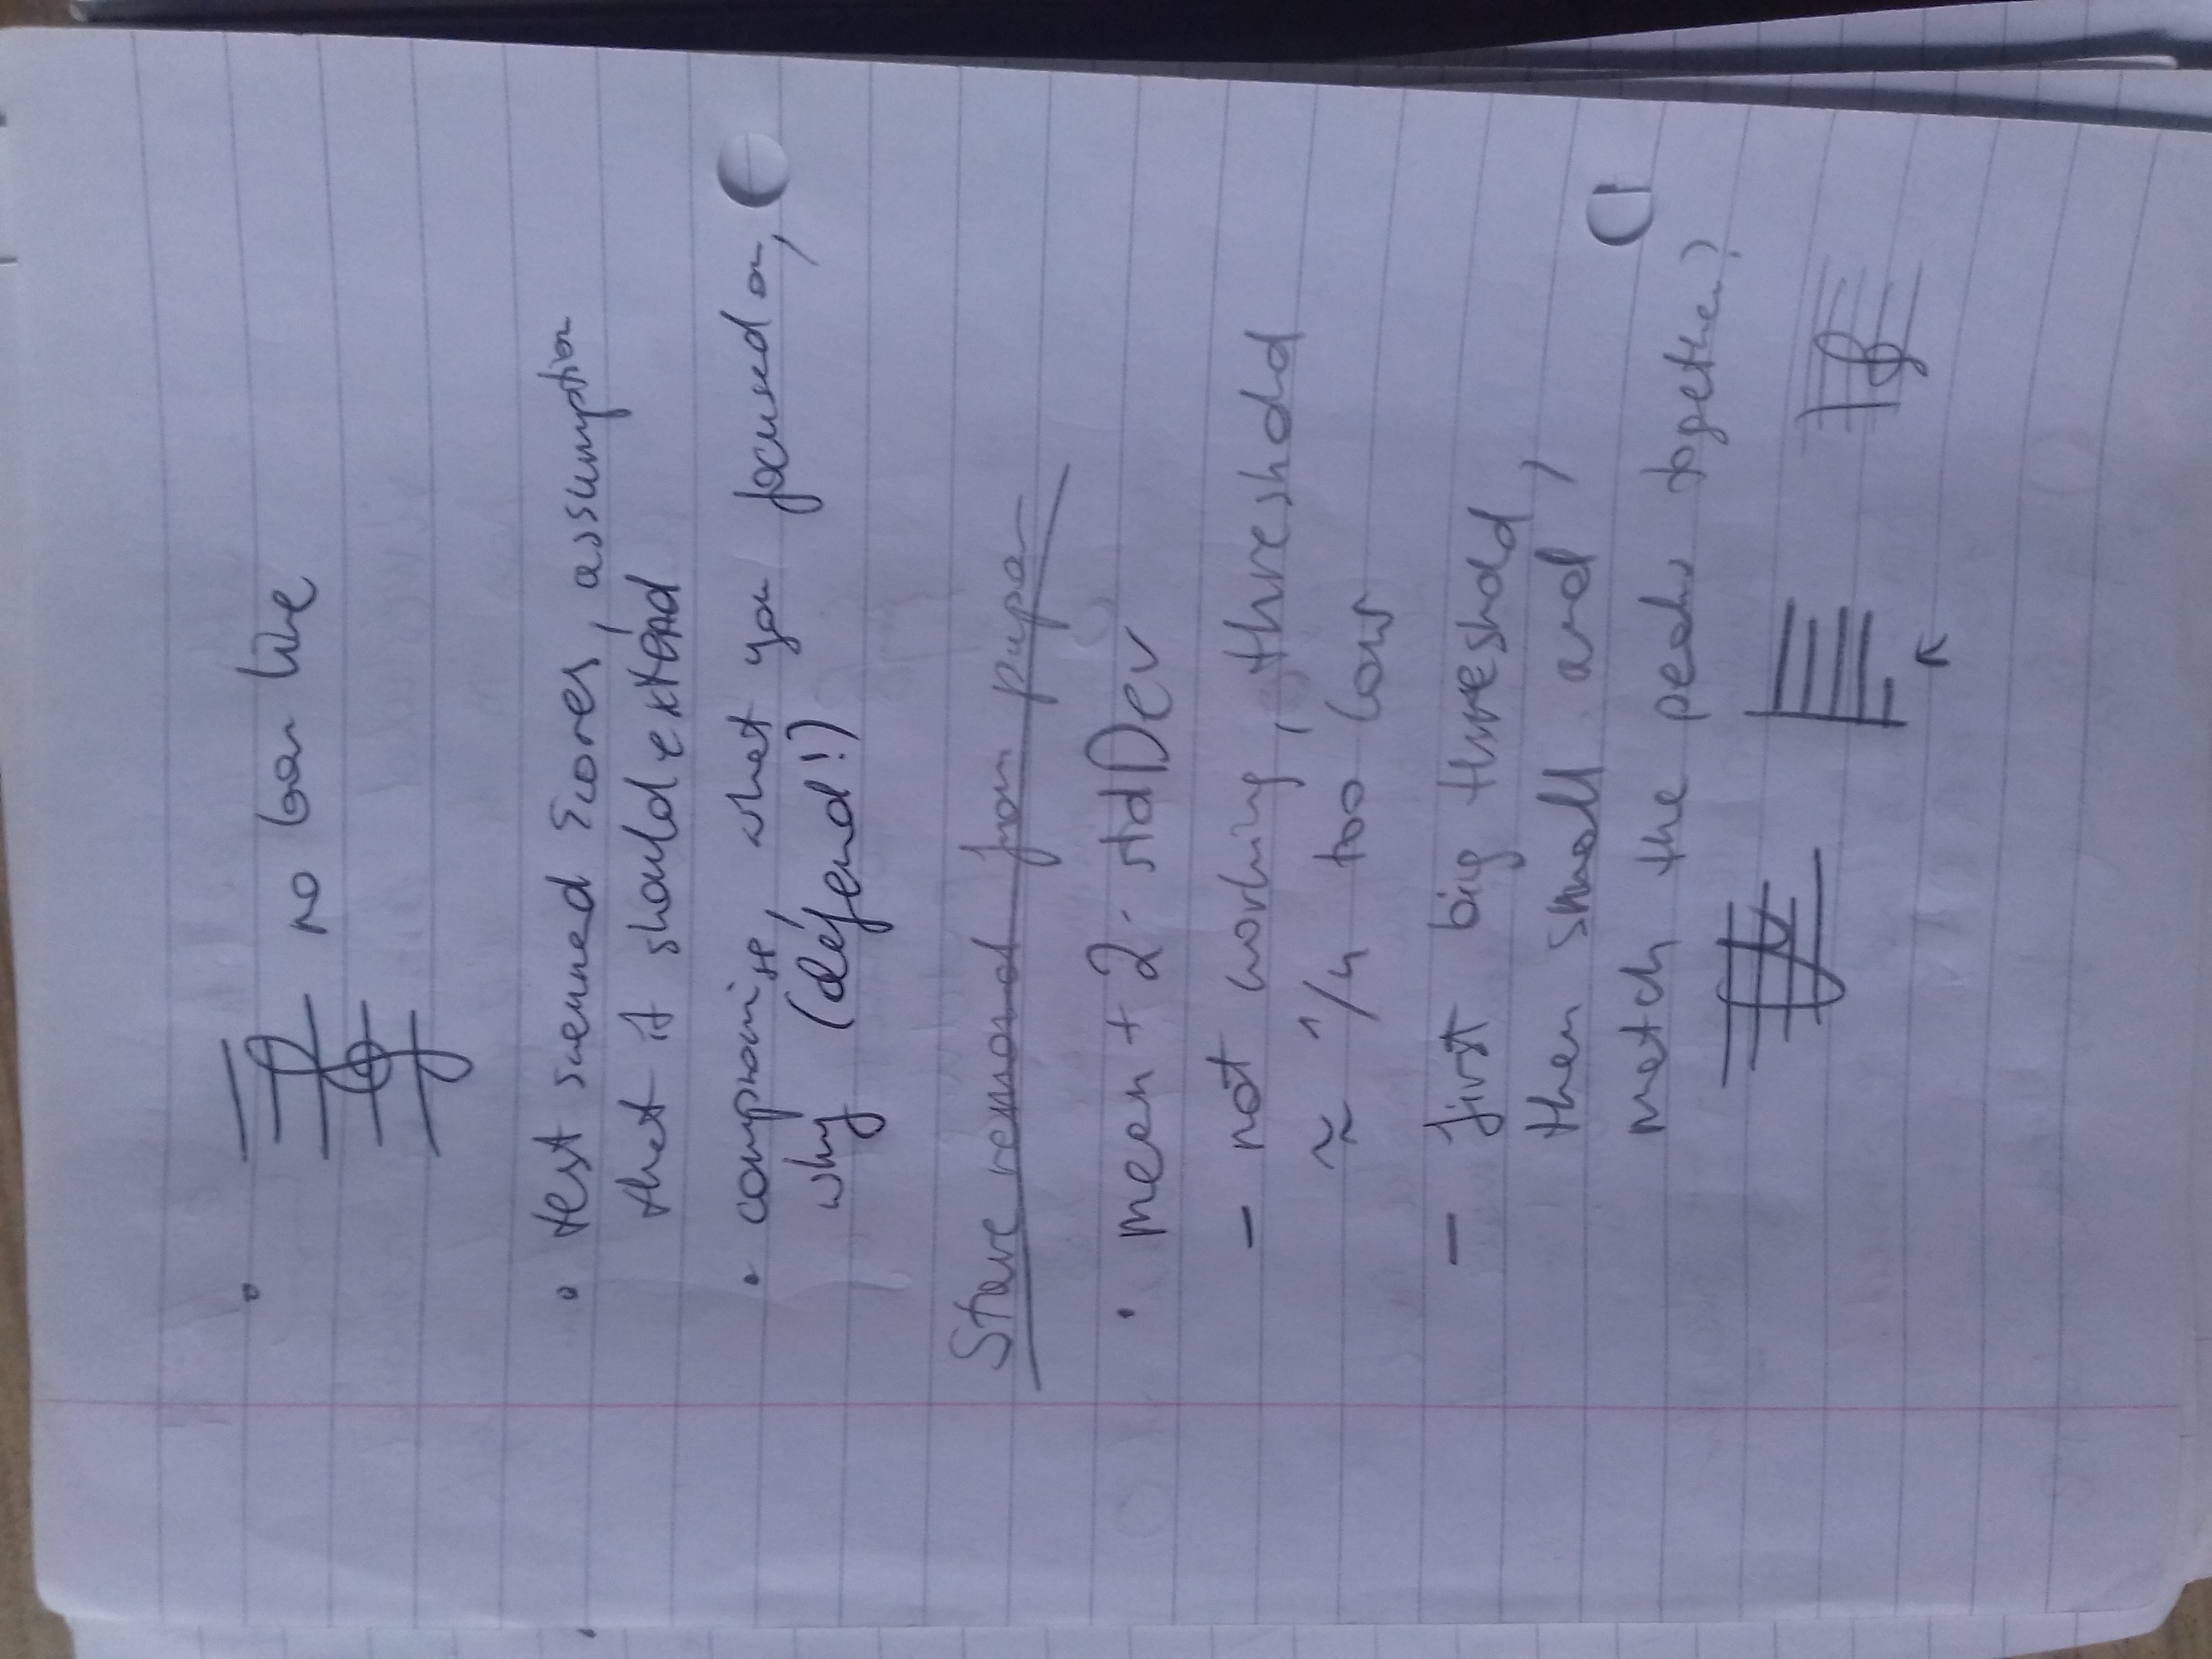 no bar line
test scanned scores, assumption
that it should extend
compromise, what you focused on,
why (defend!)
Stave removal from paper
mean + 2 · stdDev
- not working, threshold
≈ 1/4 too low
- first big threshold,
then small and
match the peaks together?